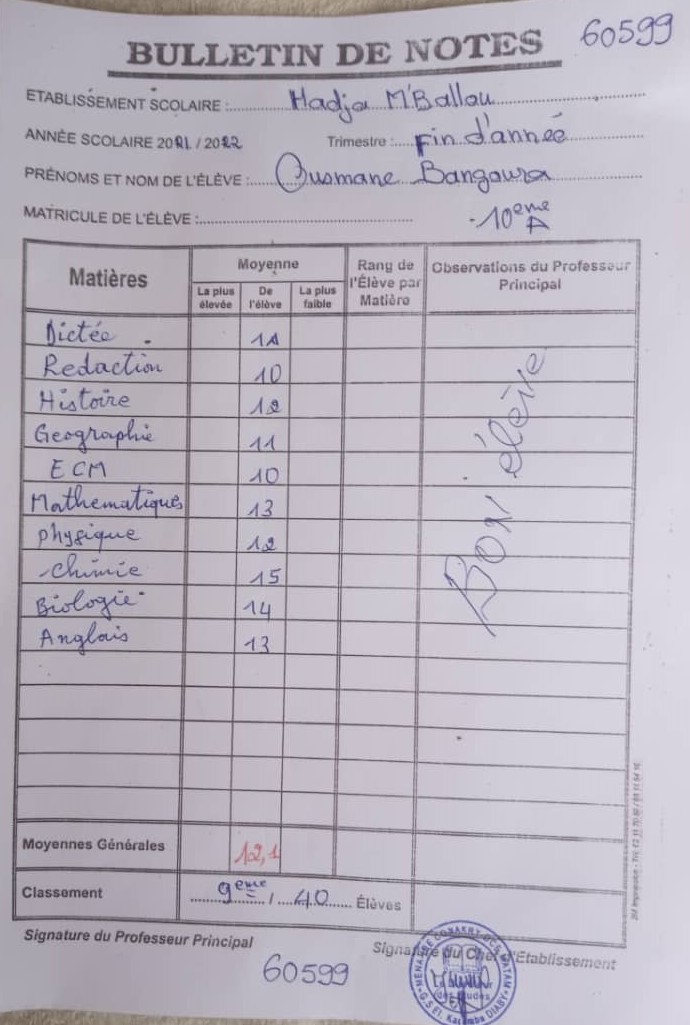 60599
BULLETIN DE NOTES
ETABLISSEMENT SCOLAIRE : Hadja M'Ballou
ANNÉE SCOLAIRE 2021 / 2022 Trimestre : Fin d'année
PRÉNOMS ET NOM DE L'ÉLÈVE : Ousmane Bangoura
MATRICULE DE L'ÉLÈVE : 10eme A
Matières Moyenne Rang de l'Élève par Matière Observations du Professeur Principal
La plus élevée De l'élève La plus faible
Dictée 11
Redaction 10
Histoire 12
Geographie 11
ECM 10
Mathematiques 13
Physique 12
chimie 15
Biologie 14
Anglais 13
Bon élève
Moyennes Générales 12,1
Classement 9eme / 40 Élèves
Signature du Professeur Principal Signature du Chef d'Etablissement
60599